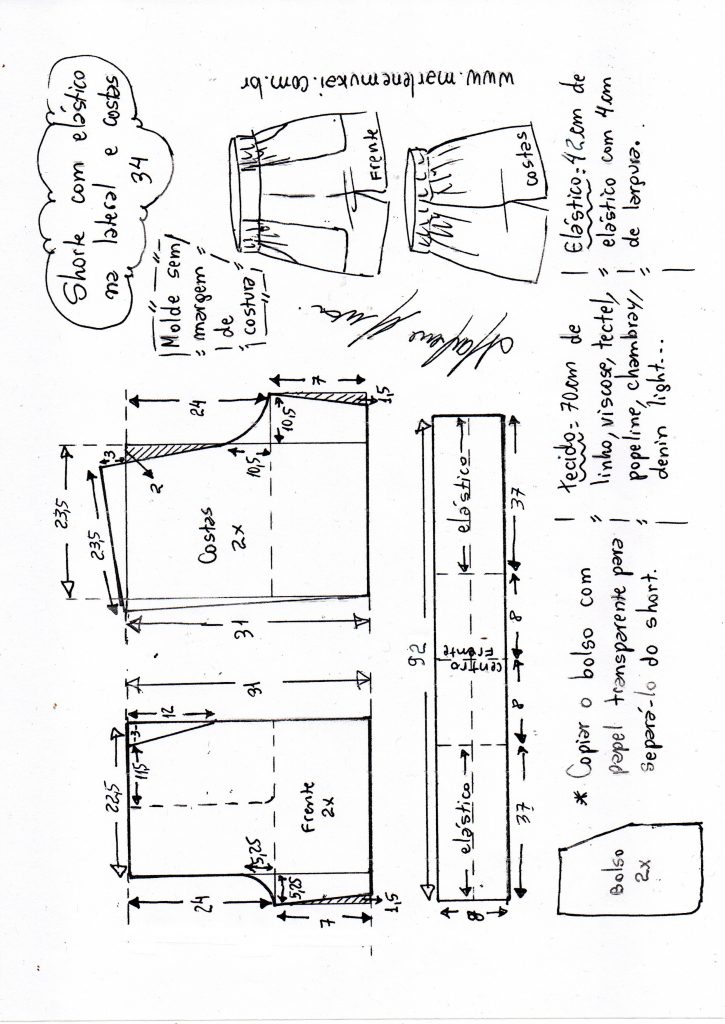 Shorte com elástico
na lateral e costas
34
www.marlenemukai.com.br
Molde sem
margem
de
costura
Frente
costas
Elástico=42cm de
elástico com 4cm
de largura.
tecido= 70cm de
linho, viscose, tectel,
popeline, chambray,
denin light...
* Copiar o bolso com
papel transparente para
separá-lo do short.
23,5
23,5
3
2
24
10,5
10,5
7
1,5
31
Costas
2x
31
22,5
12
3
11,5
24
5,25
5,25
7
1,5
Frente
2x
92
elástico
elástico
centro
Frente
37
8
8
37
8
Bolso
2x